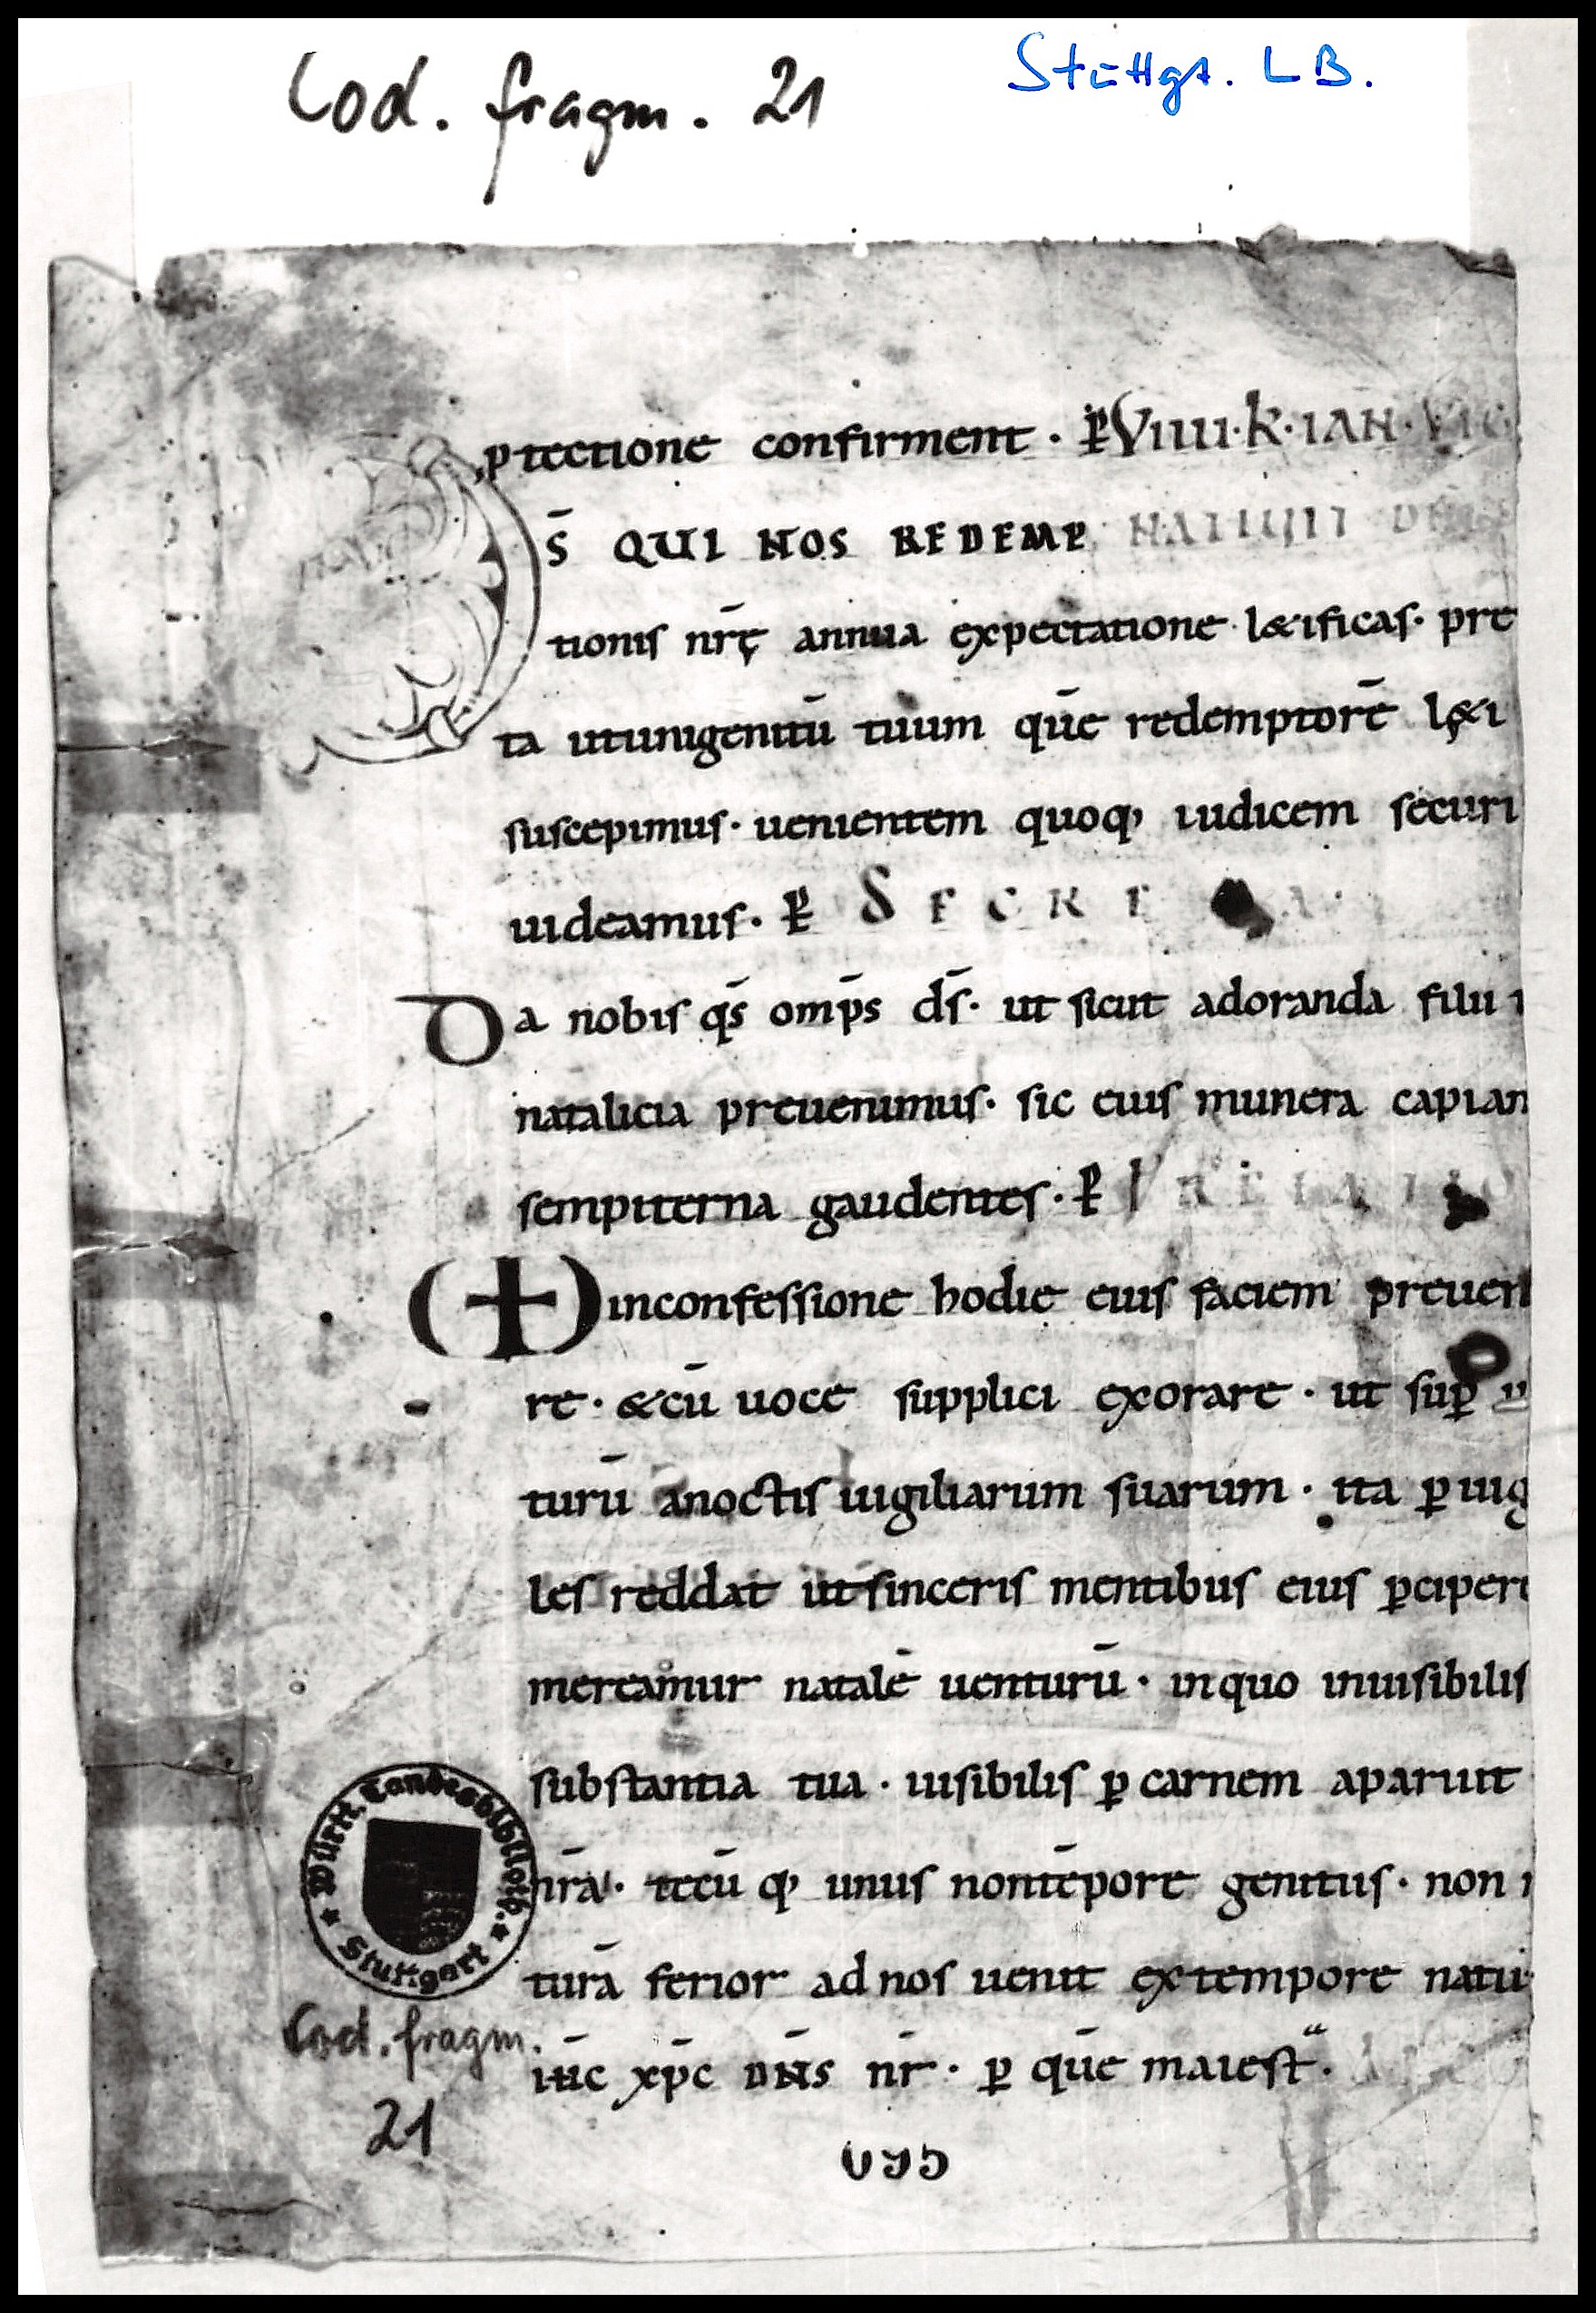 Cod. fragm. 21
Stuttgt. LB.
ptectione confirment · ꝑ VIIII · K · IAN · VIG
S̄ QUI NOS REDEMP NATIUIT DNI
tionis nrę̄ annua expectatione l&ificas · pre
ta utunigenitū tuum quē redemptorē l&i
suscepimus · uenientem quoq; iudicem securi
uideamus · ꝑ SECRE A ·
Da nobis qs̄ omp̄s ds̄ · ut sicut adoranda filii
natalicia preuenimus · sic eius munera capiam
sempiterna gaudentes · ꝑ PREFATIO
inconfessione hodie eius faciem preueni
re · &cū uoce supplici exorare · ut suꝑ
turū anoctis uigiliarum suarum · ita ꝑuig
les reddat utsinceris mentibus eius ꝑcipere
mereamur natalē uenturū · inquo inuisibilis
substantia tua · uisibilis ꝑ carnem aparuit
nrā · tecū q; unus nontēpore genitus · non
turā ferior adnos uenit extempore natu
ih̄c xp̄c DN̄S nr̄ · ꝑ quē maiest̄ ·
Württ. Landesbiblioth.
Stuttgart
Cod. fragm.
21